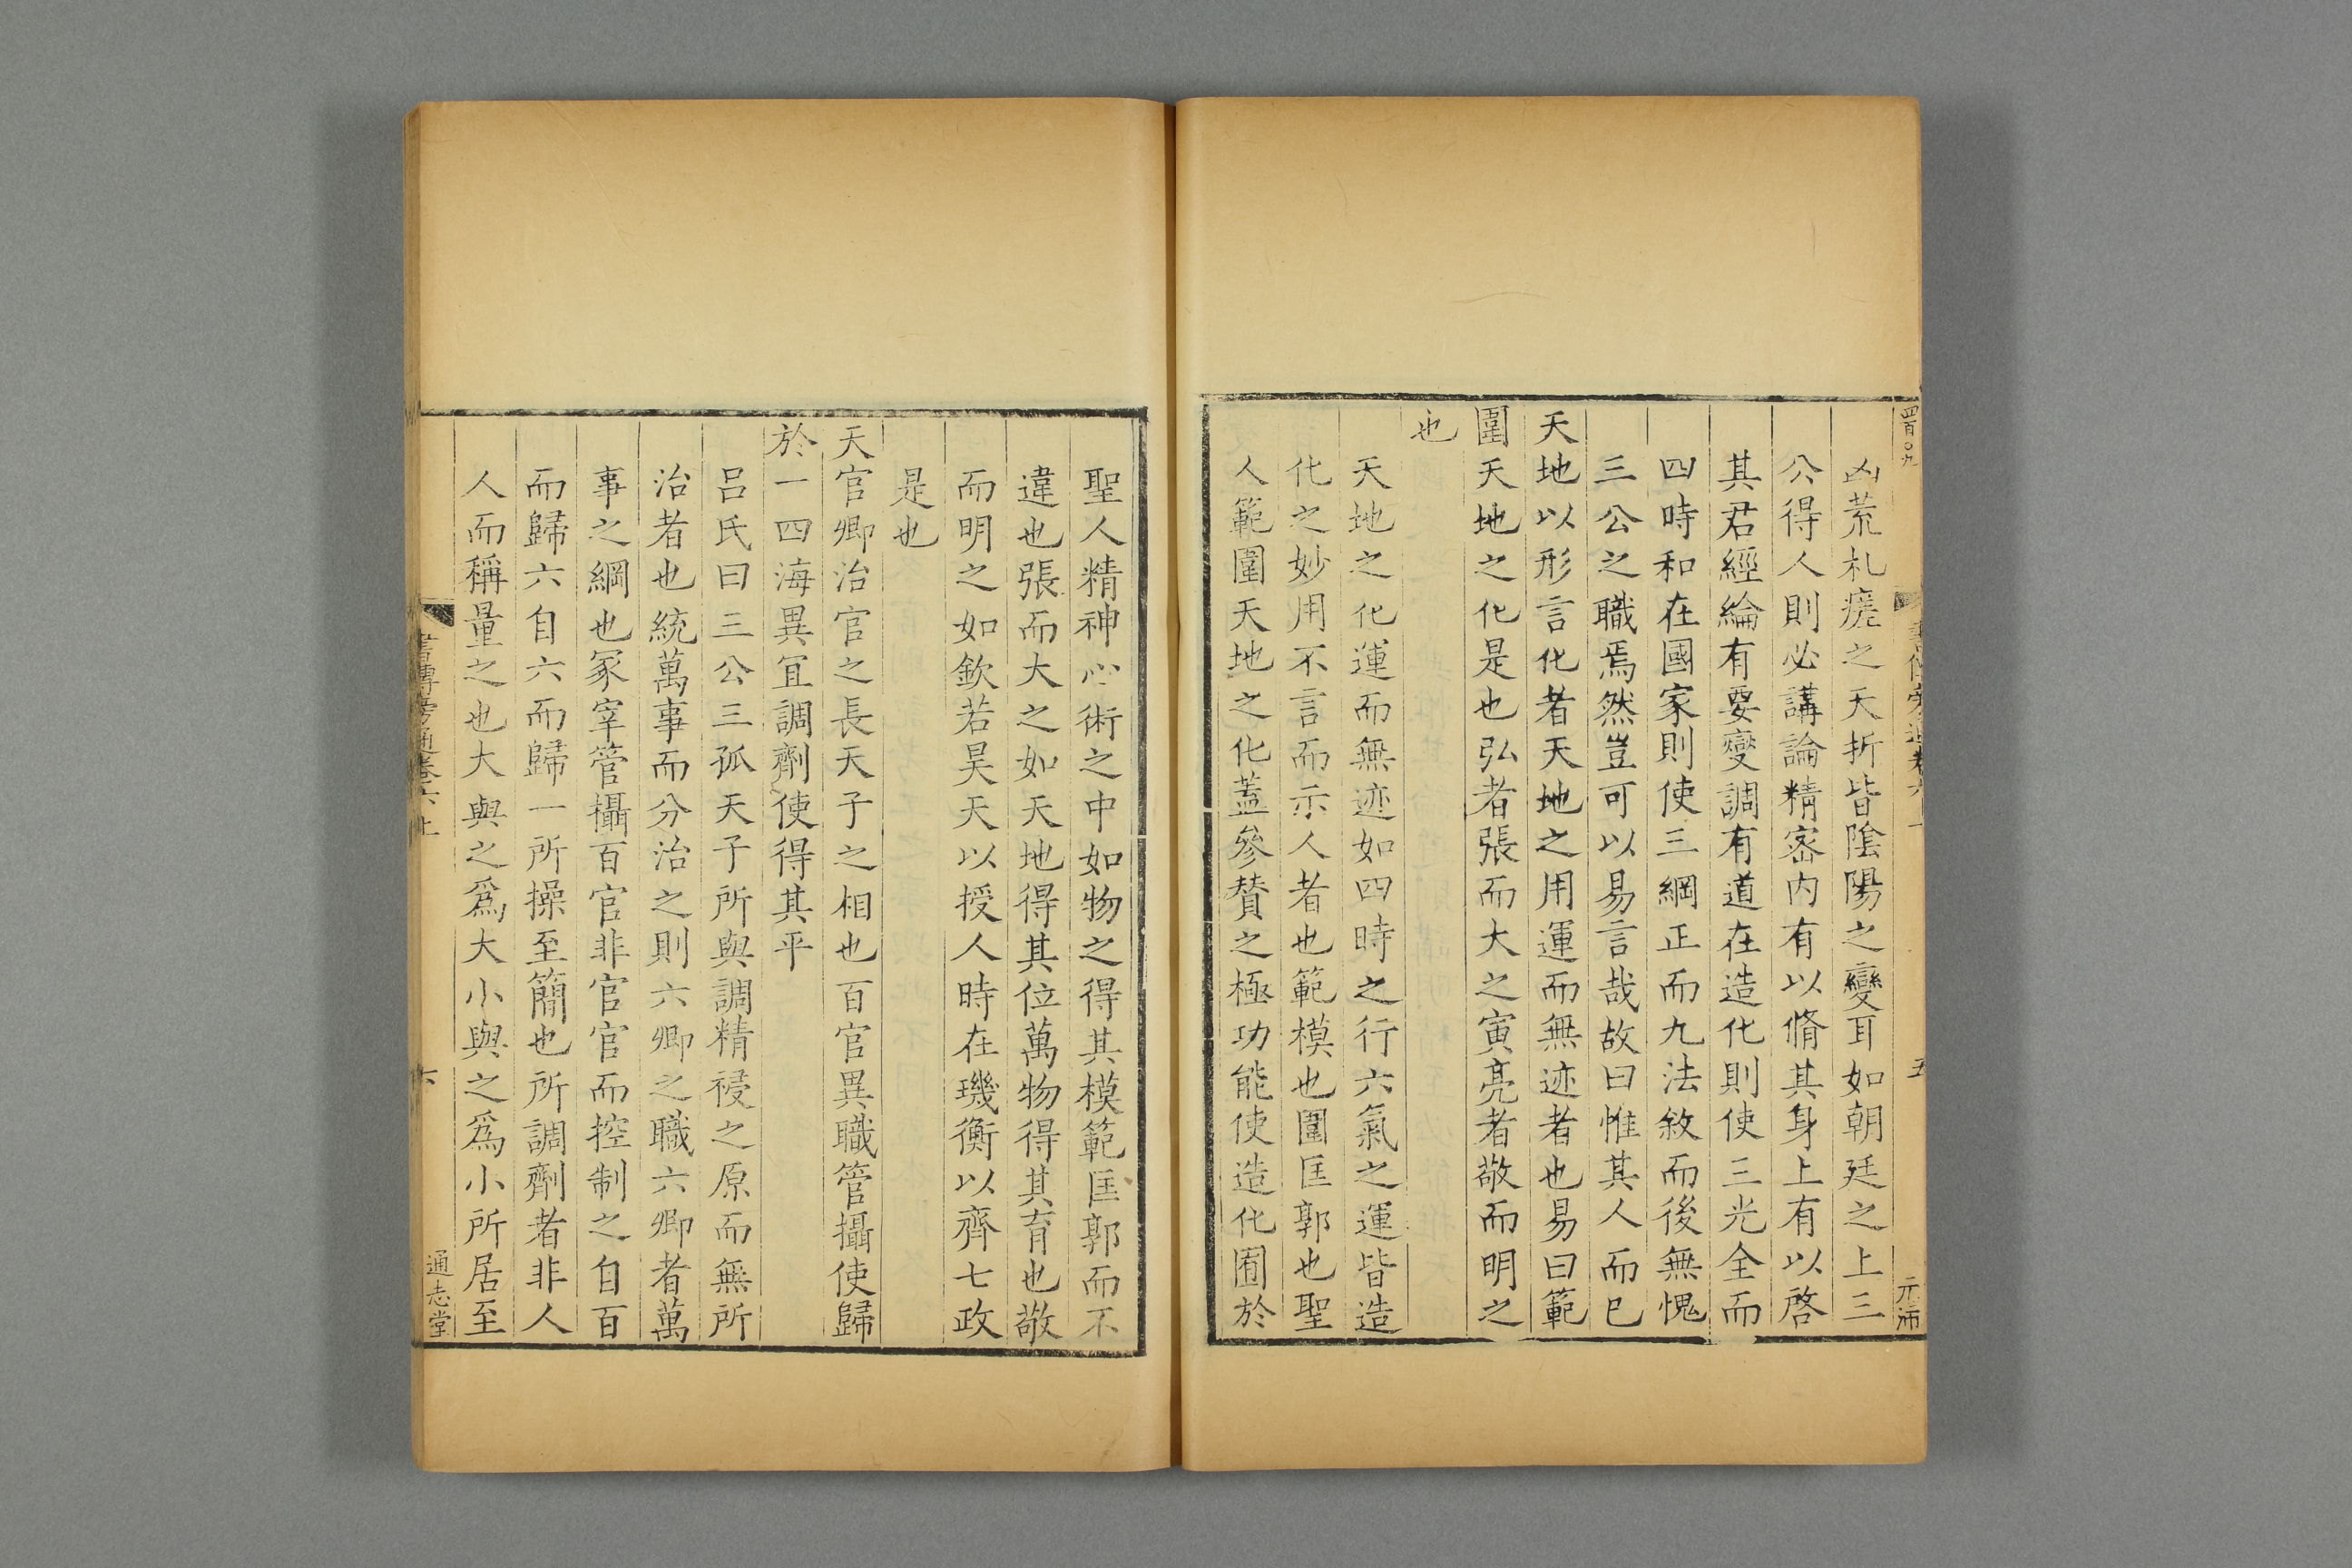 凶荒札瘥之夭折皆陰陽之變耳如朝廷之上三
公得人則必講論精宻内有以脩其身上有以啓
其君經綸有要變調有道在造化則使三光全而
四時和在國家則使三綱正而九法敘而後無愧
三公之職焉然豈可以易言哉故曰惟其人而已
天地以形言化者天地之用運而無迹者也易曰範
圍天地之化是也弘者張而大之寅亮者敬而明之
也
天地之化運而無迹如四時之行六氣之運皆造
化之妙用不言而示人者也範模也圍匡郭也聖
人範圍天地之化蓋參賛之極功能使造化囿於
聖人精神心術之中如物之得其模範匡郭而不
違也張而大之如天地得其位萬物得其育也敬
而明之如欽若昊天以授人時在璣衡以齊七政
是也
天官卿治官之長天子之相也百官異職管攝使歸
於一四海異宜調劑使得其平
呂氏曰三公三孤天子所與調精祲之原而無所
治者也統萬事而分治之則六卿之職六卿者萬
事之綱也冢宰管攝百官非官官而控制之自百
而歸六自六而歸一所操至簡也所調劑者非人
人而稱量之也大與之爲大小與之爲小所居至
書傳旁通卷六上
六
通志堂
四百〇九
五